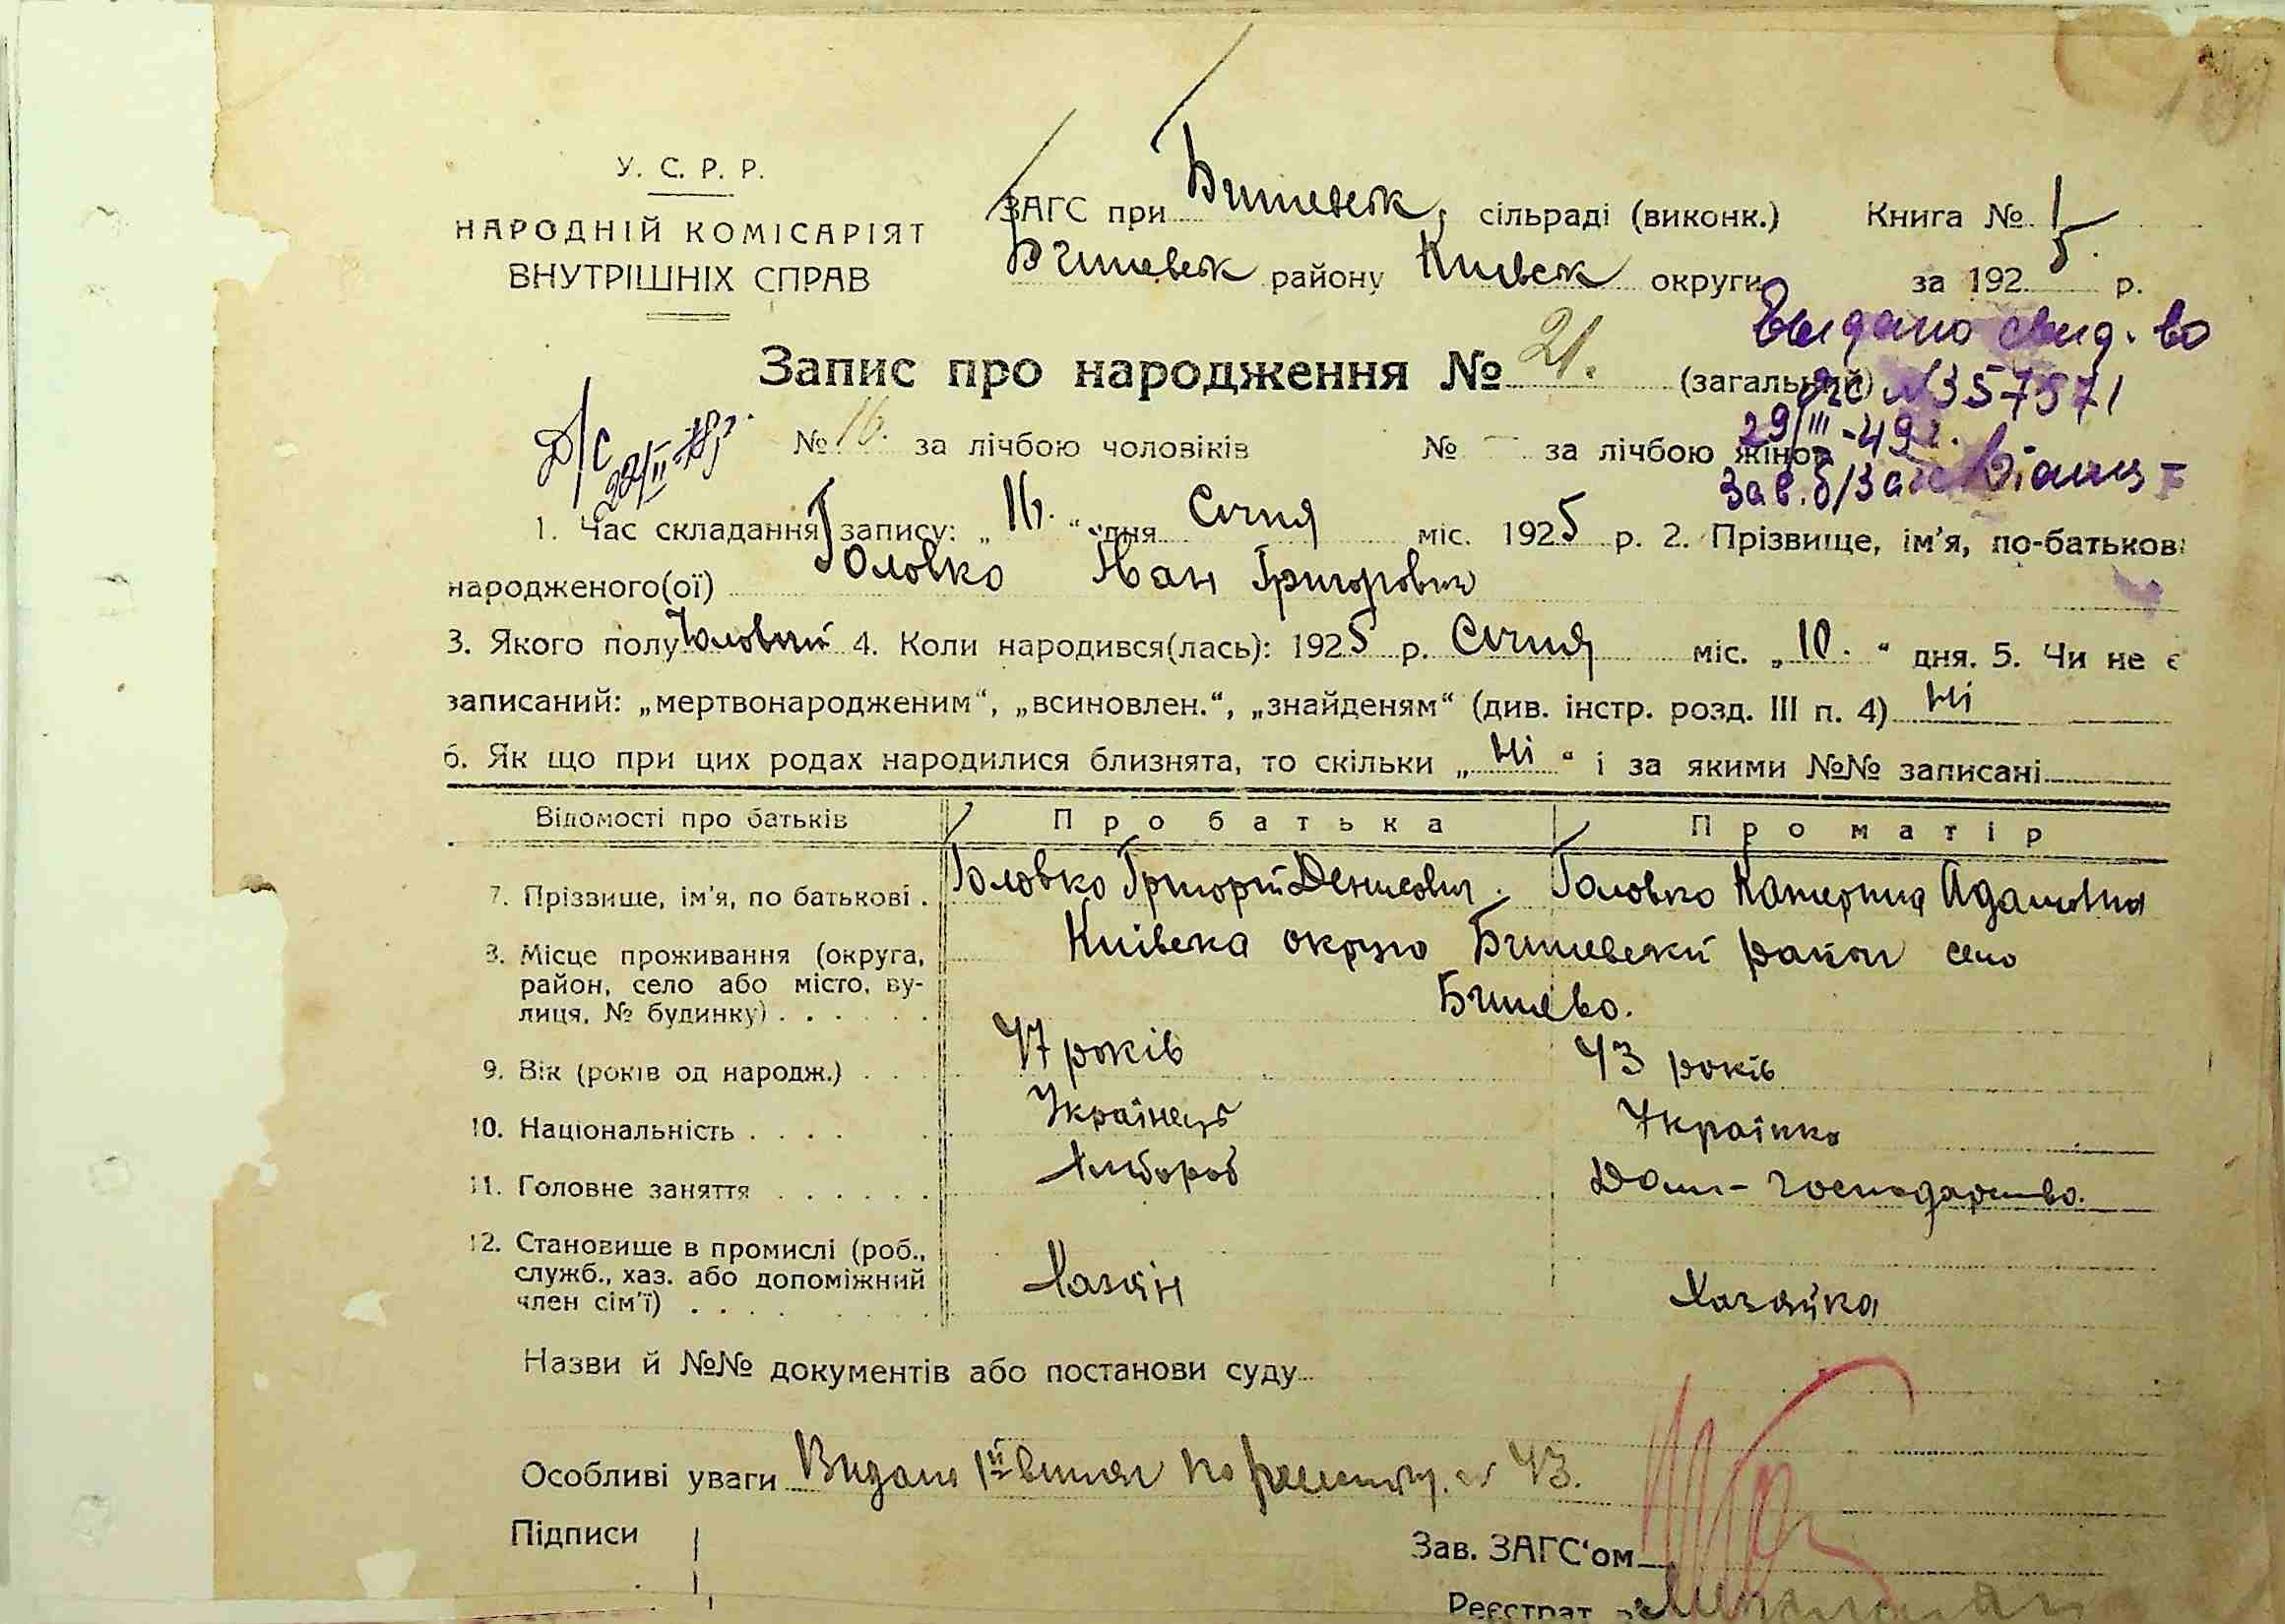 У. С. Р. Р.
НАРОДНІЙ КОМІСАРІЯТ
ВНУТРІШНІХ СПРАВ
ЗАГС при Бишевськ. сільраді (виконк.) Книга № 1
Бишевськ району Київськ округи за 1925 р.
Выдано свид-во
№ 357571
29/III-49 г.
Зав. б/Загс
Запис про народження № 21. (загальний)
№ 16. за лічбою чоловіків № — за лічбою жінок
1. Час складання запису: „16.“ дня Січня міс. 1925 р. 2. Прізвище, ім'я, по-батькові
народженого(ої) Головко Іван Григорович
3. Якого полу Чоловічий 4. Коли народився(лась): 1925 р. Січня міс. „10.“ дня. 5. Чи не є
записаний: „мертвонародженим“, „всиновлен.“, „знайденям“ (див. інстр. розд. III п. 4) Ні
6. Як що при цих родах народилися близнята, то скільки „Ні“ і за якими №№ записані
Відомості про батьків Про батька Про матір
7. Прізвище, ім'я, по батькові . Головко Григорій Денисович. Головко Катерина Адамовна
8. Місце проживання (округа, район, село або місто, вулиця, № будинку) . . . . . . Київська округа Бишевський район село
Бишево.
9. Вік (років од народж.) . . 47 років 43 років
10. Національність . . . . Українець Українка
11. Головне заняття . . . . . . Хлібороб Дом-господарство.
12. Становище в промислі (роб.,
служб., хаз. або допоміжний
член сім'ї) . . . . Хазяїн Хазяйка
Назви й №№ документів або постанови суду
Особливі уваги Видано 1й № 43.
Підписи
Зав. ЗАГС'ом
Реєстрат